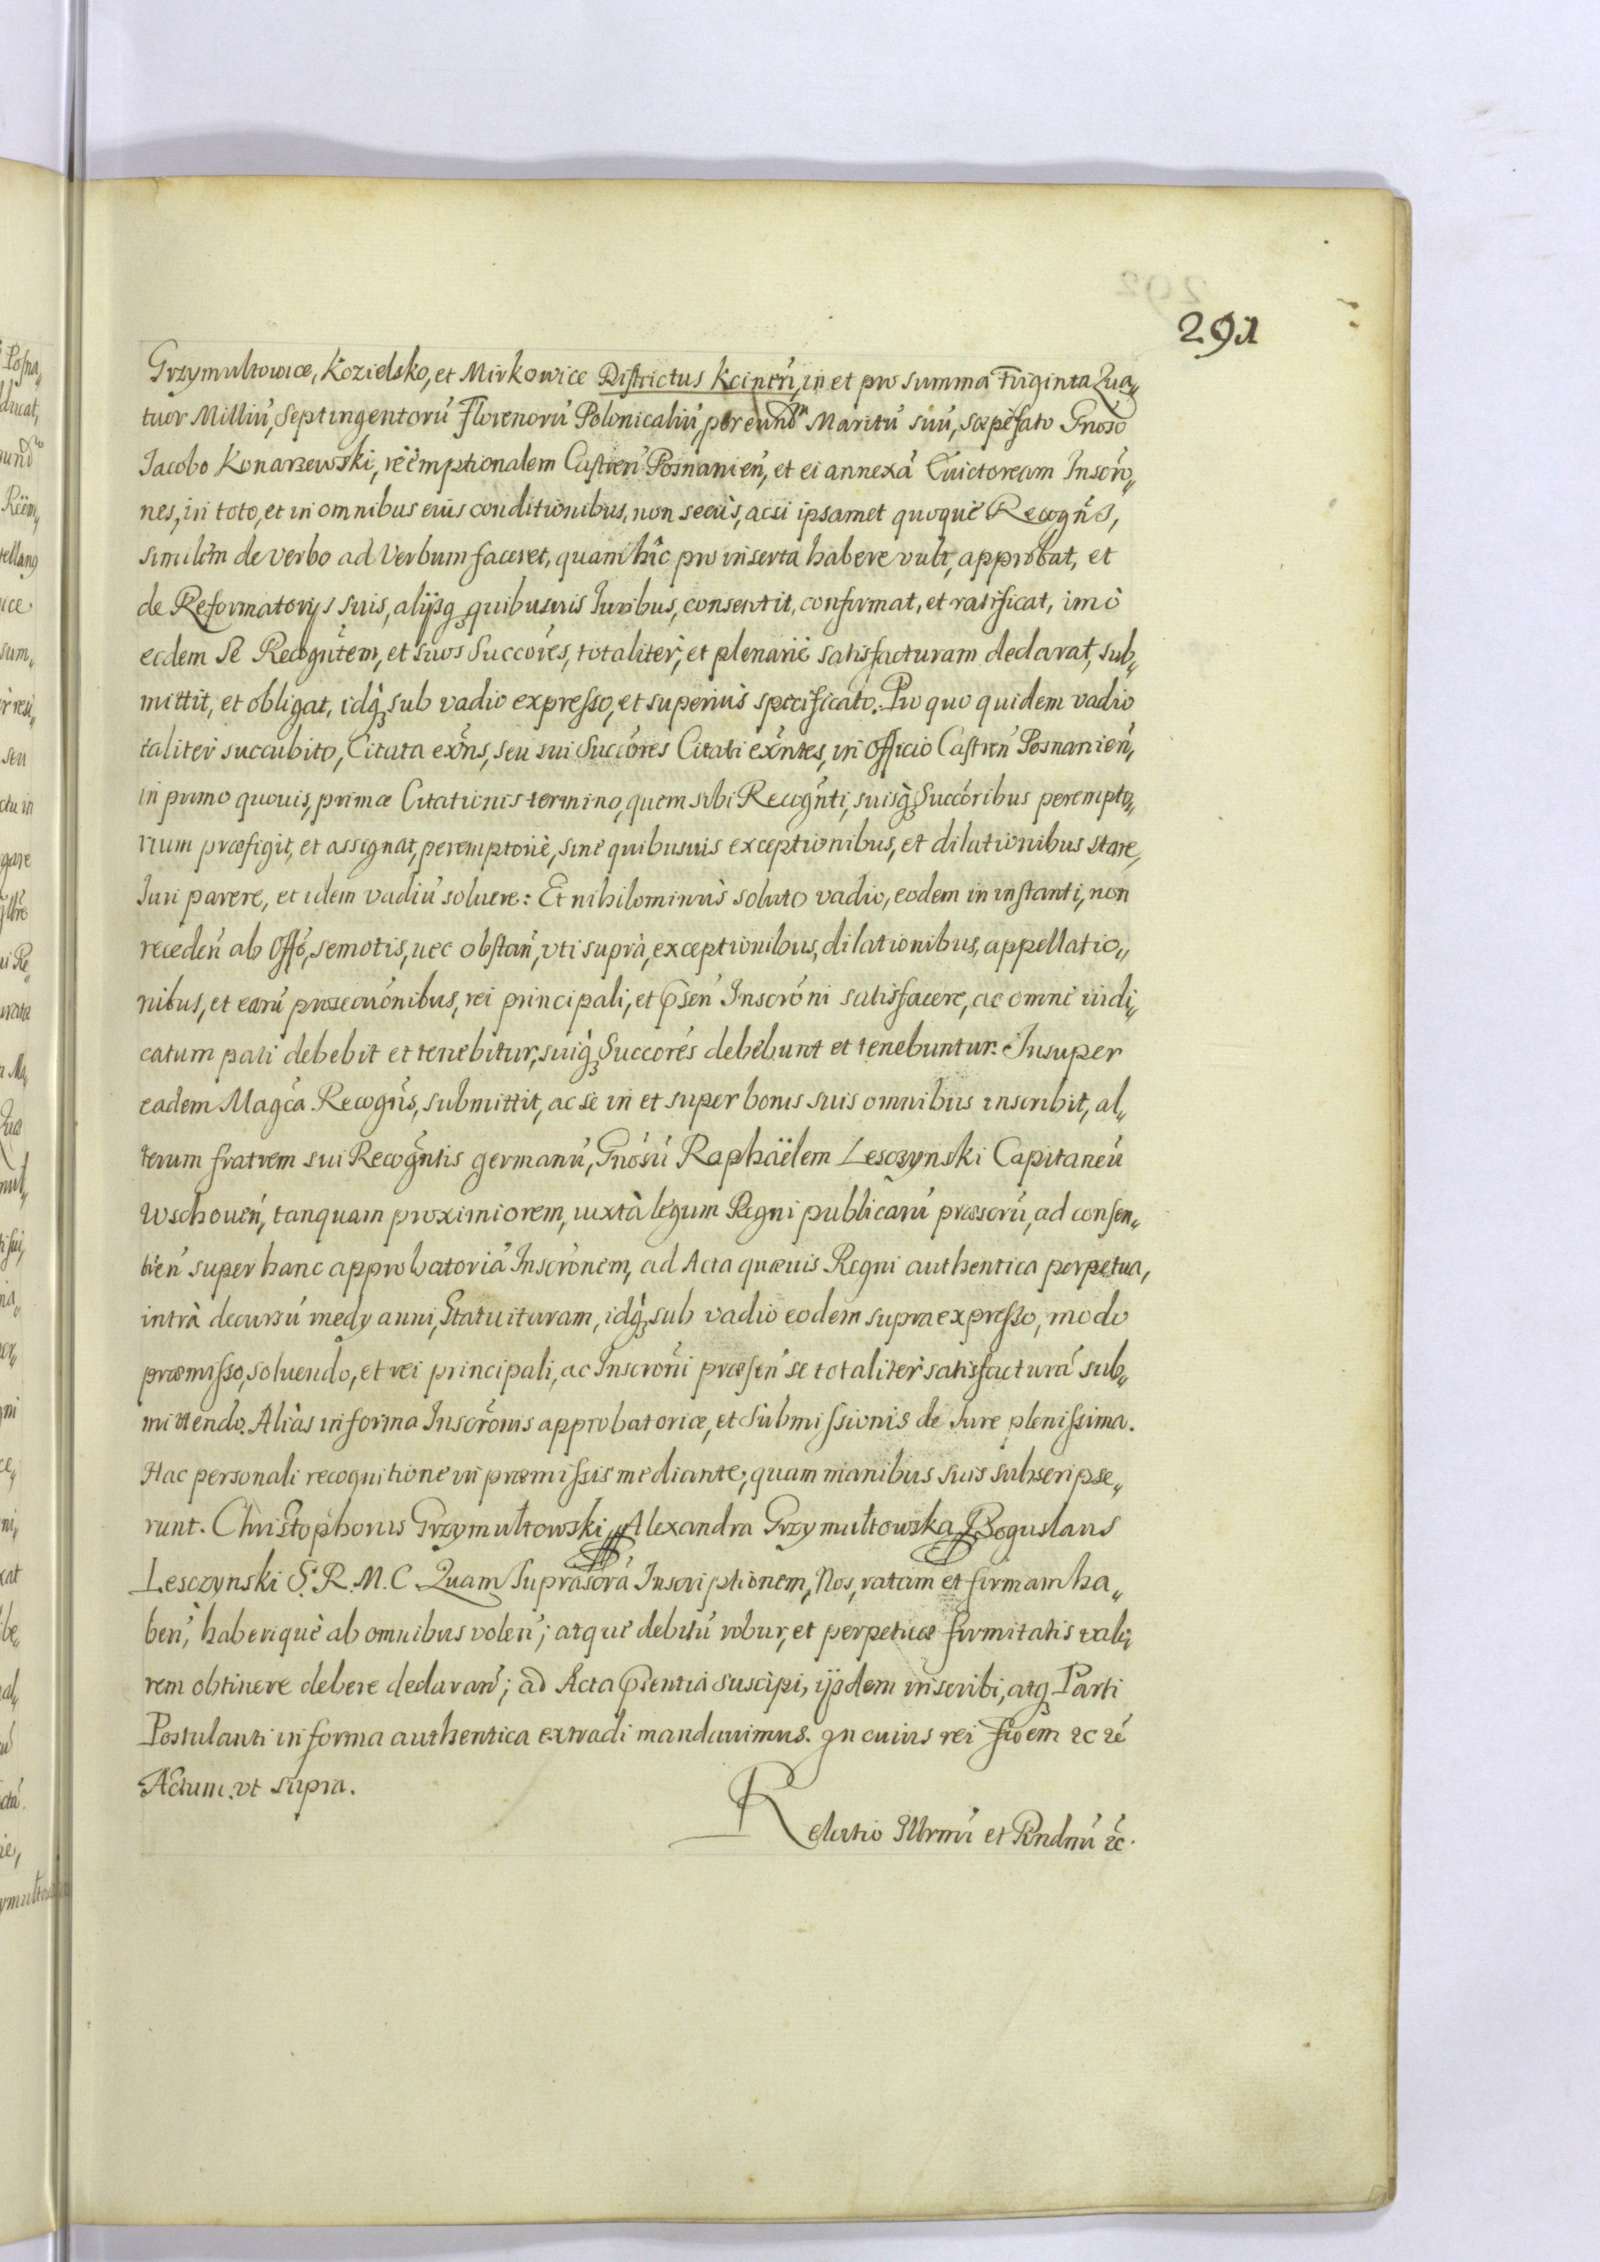 291
Grzymułtowice, Kozielsko, et Mirkowice Districtus Kcinen̄, in et pro summa Triginta Qua„
tuor Milliū, Septingentorū Florenorū Polonicaliū, per eund̄m Maritū suū, sæpefato Gnoso
Jacobo Konarzewski, reëmptionalem Castren̄ Posnanien̄, et ei annexā Euictoream Inscrō„
nes, in toto, et in omnibus eius conditionibus, non secùs, acsi ipsamet quoquè Recogn̄s,
similēm de verbo ad Verbum faceret, quam hîc pro inserta habere vult, approbat, et
de Reformatorijs suis, alijsq quibusuis Juribus, consentit, confirmat, et ratificat, imò
eodem se Recogn̄tem, et suos Succōres, totalitèr, et plenariè satisfacturam declarat, sub„
mittit, et obligat, idq́ sub vadio expresso, et superiùs specificato. Pro quo quidem vadio
talitèr succubito, Citata exn̄s, seu sui Succōres Citati exn̄tes, in Officio Castren̄ Posnanien̄,
in primo quouis, primæ Citationis termino, quem sibi Recogn̄ti, suisq́ Succōribus perempto„
rium præfigit, et assignat, peremptoriè, sinè quibusuis exceptionibus, et dilationibus stare,
Juri parere, et idem vadiū soluere: Et nihilominùs soluto vadio, eodem in instanti, non
receden̄ ab Offō, semotis, nec obstan̄, vti suprà, exceptionibus, dilationibus, appellatio„
nibus, et earū prosecuōnibus, rei principali, et p̄sen̄ Inscrōni satisfacere, ac omne iudi„
catum pati debebit et tenebitur, suiq́ Succōres debebunt et tenebuntur. Insuper
eadem Magcā Recogn̄s, submittit, ac se in et super bonis suis omnibus inscribit, al„
terum fratrem sui Recogn̄tis germanū, Gnōsū Raphaëlem Lesczynski Capitaneū
Wschouen̄, tanquam proximiorem, iuxtà legum Regni publicarū præscrū, ad consen„
tien̄ super hanc approbatoriā Inscrōnem, ad Acta quæuis Regni authentica perpetua,
intrà decursū medy anni, Statuituram, idq́ sub vadio eodem supra expresso, modo
præmisso, soluendo, et rei principali, ac Inscrōni præsen̄ se totalitèr satisfacturā sub„
mittendo. Aliàs in forma Inscrōnis approbatoriæ, et submissionis de Jure plenissima.
Hac personali recognitione in præmissis mediante, quam manibus suis subscripse„
runt. Christophorus Grzymułtowski, Alexandra Grzymułtowska, Boguslaus
Lesczynski S. R. M. C. Quam suprascrā Inscriptionem, Nos, ratam et firmam ha„
ben̄, haberiquè ab omnibus volen̄; atquè debitū robur, et perpetuæ firmitatis valo„
rem obtinere debere declaran̄; ad Acta p̄sentia suscipi, ijsdem inscribi, atq Parti
Postulanti in forma authentica extradi mandauimus. In cuius rei fidem ꝛc ꝛc
Actum. vt supra.
Relatio Illrmī et Rndmī ꝛc.